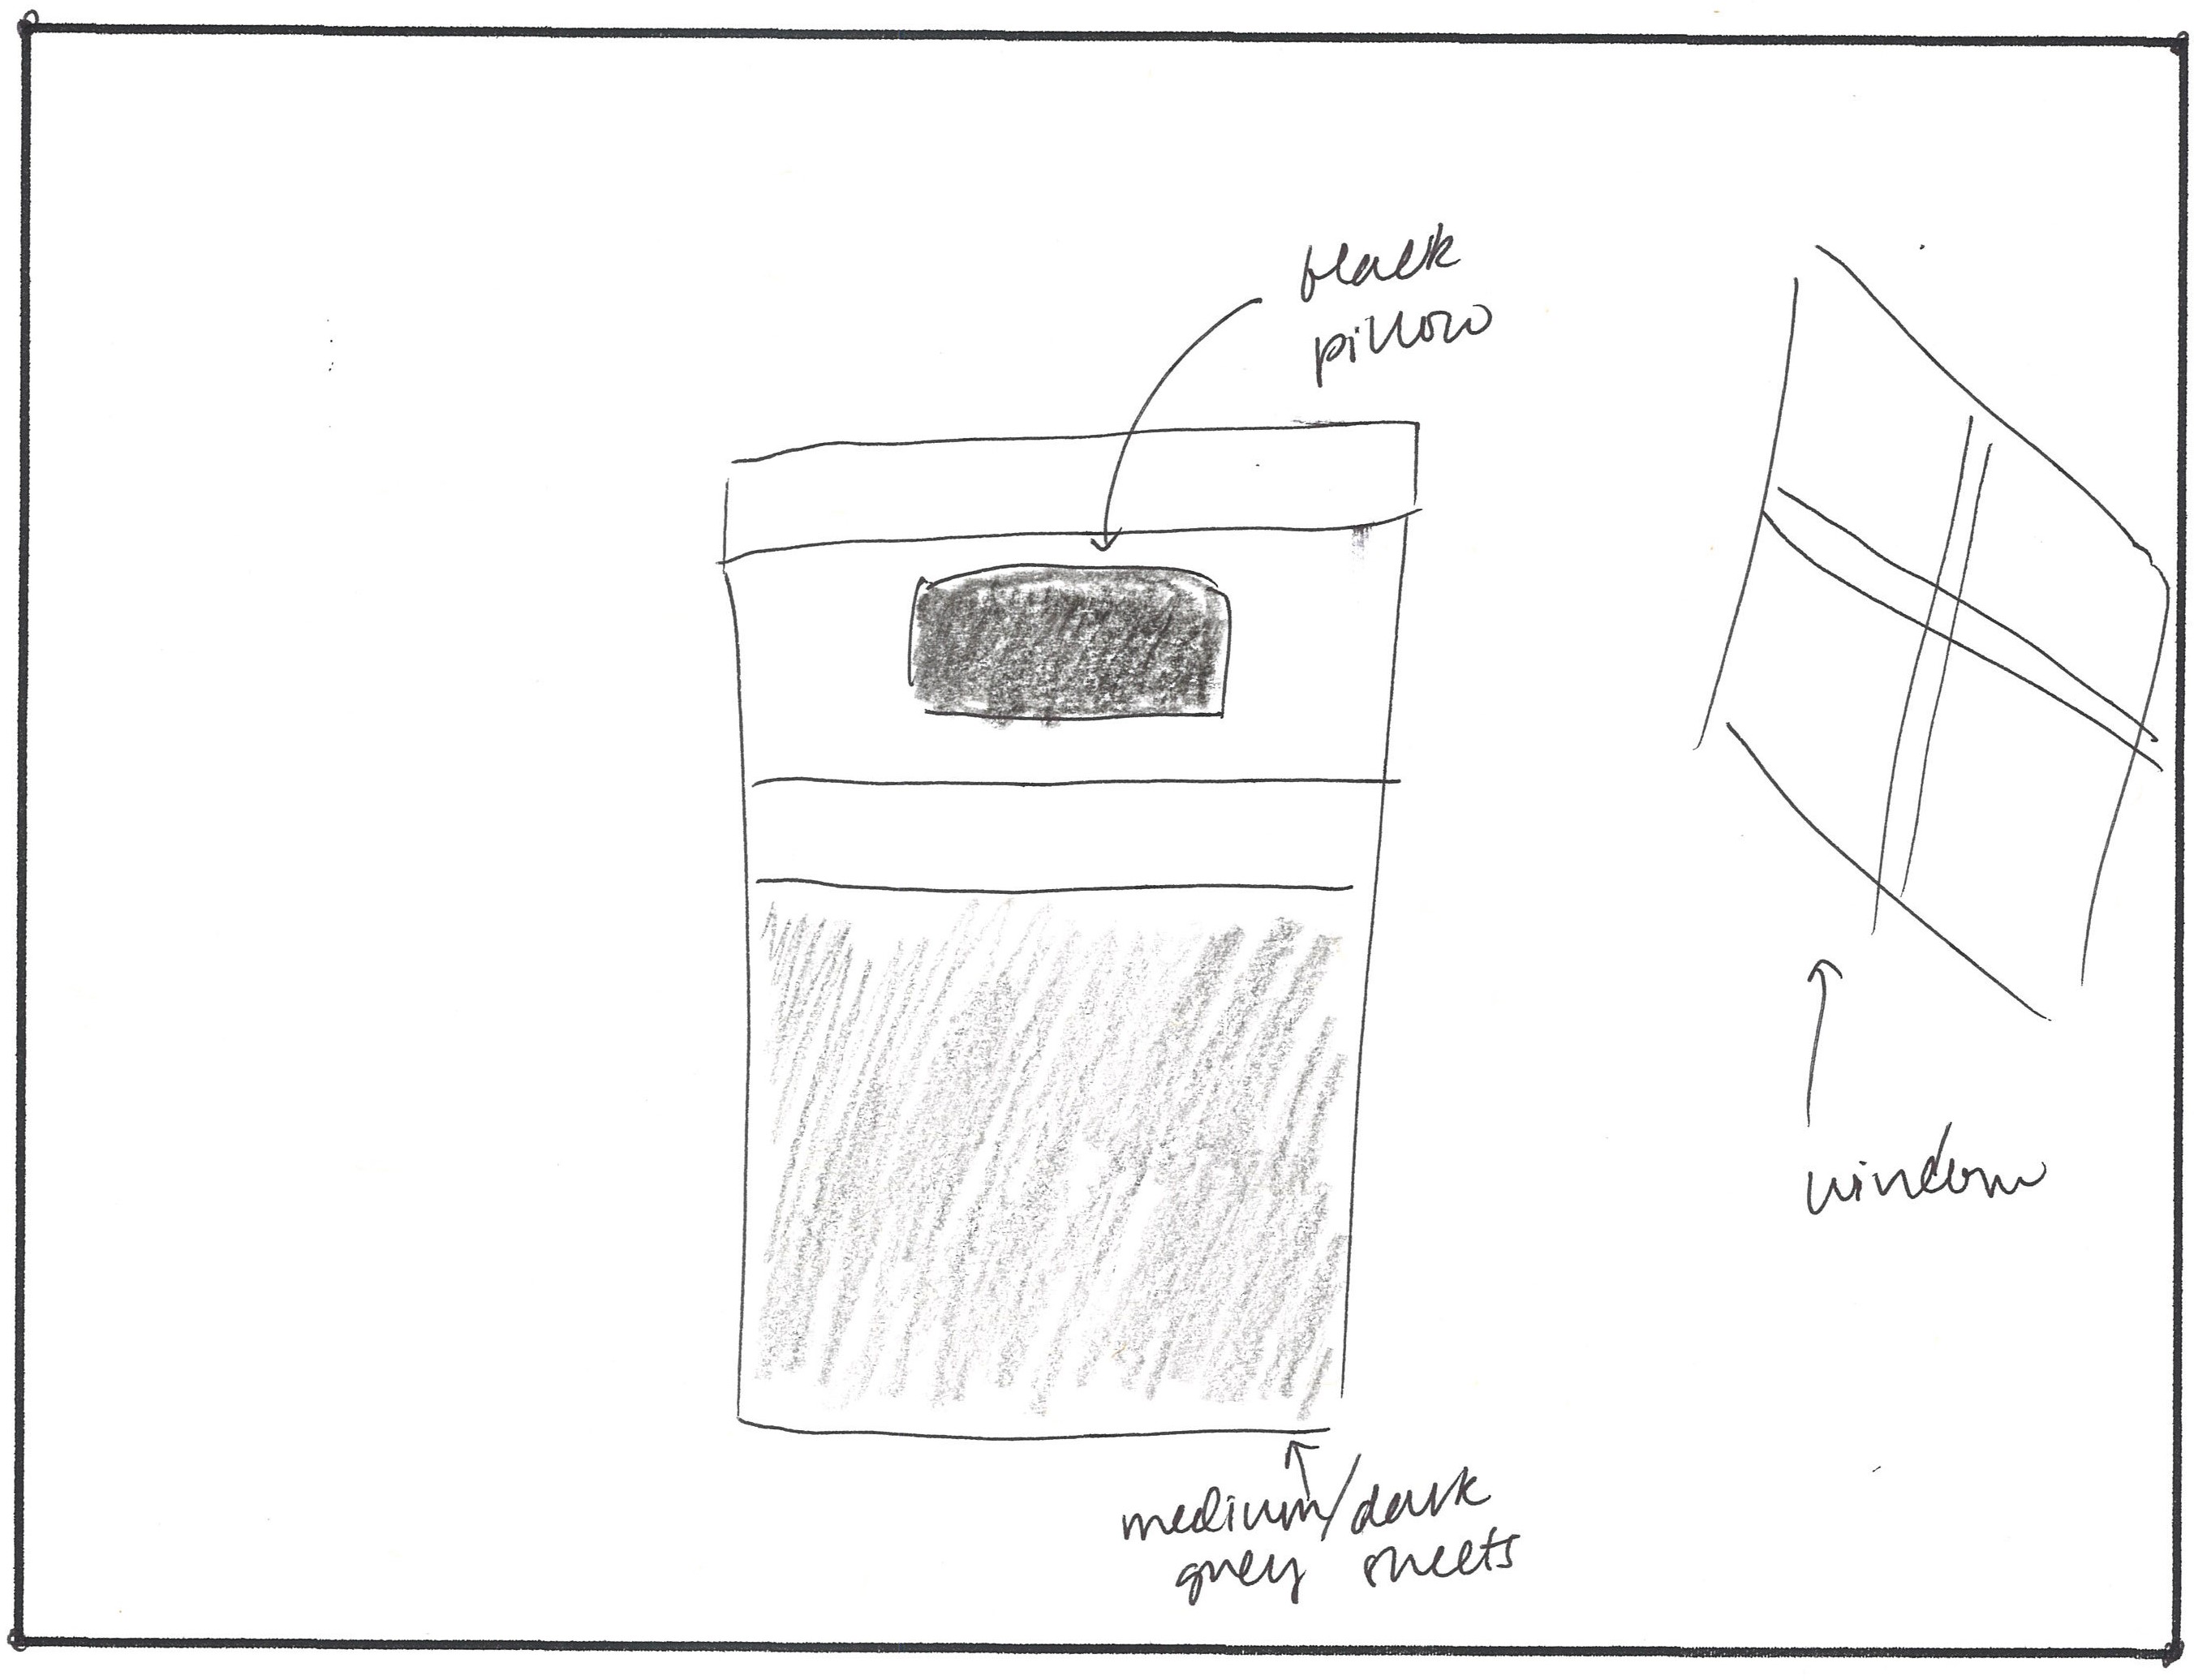 black
pillow
window
medium/dark
grey sheets